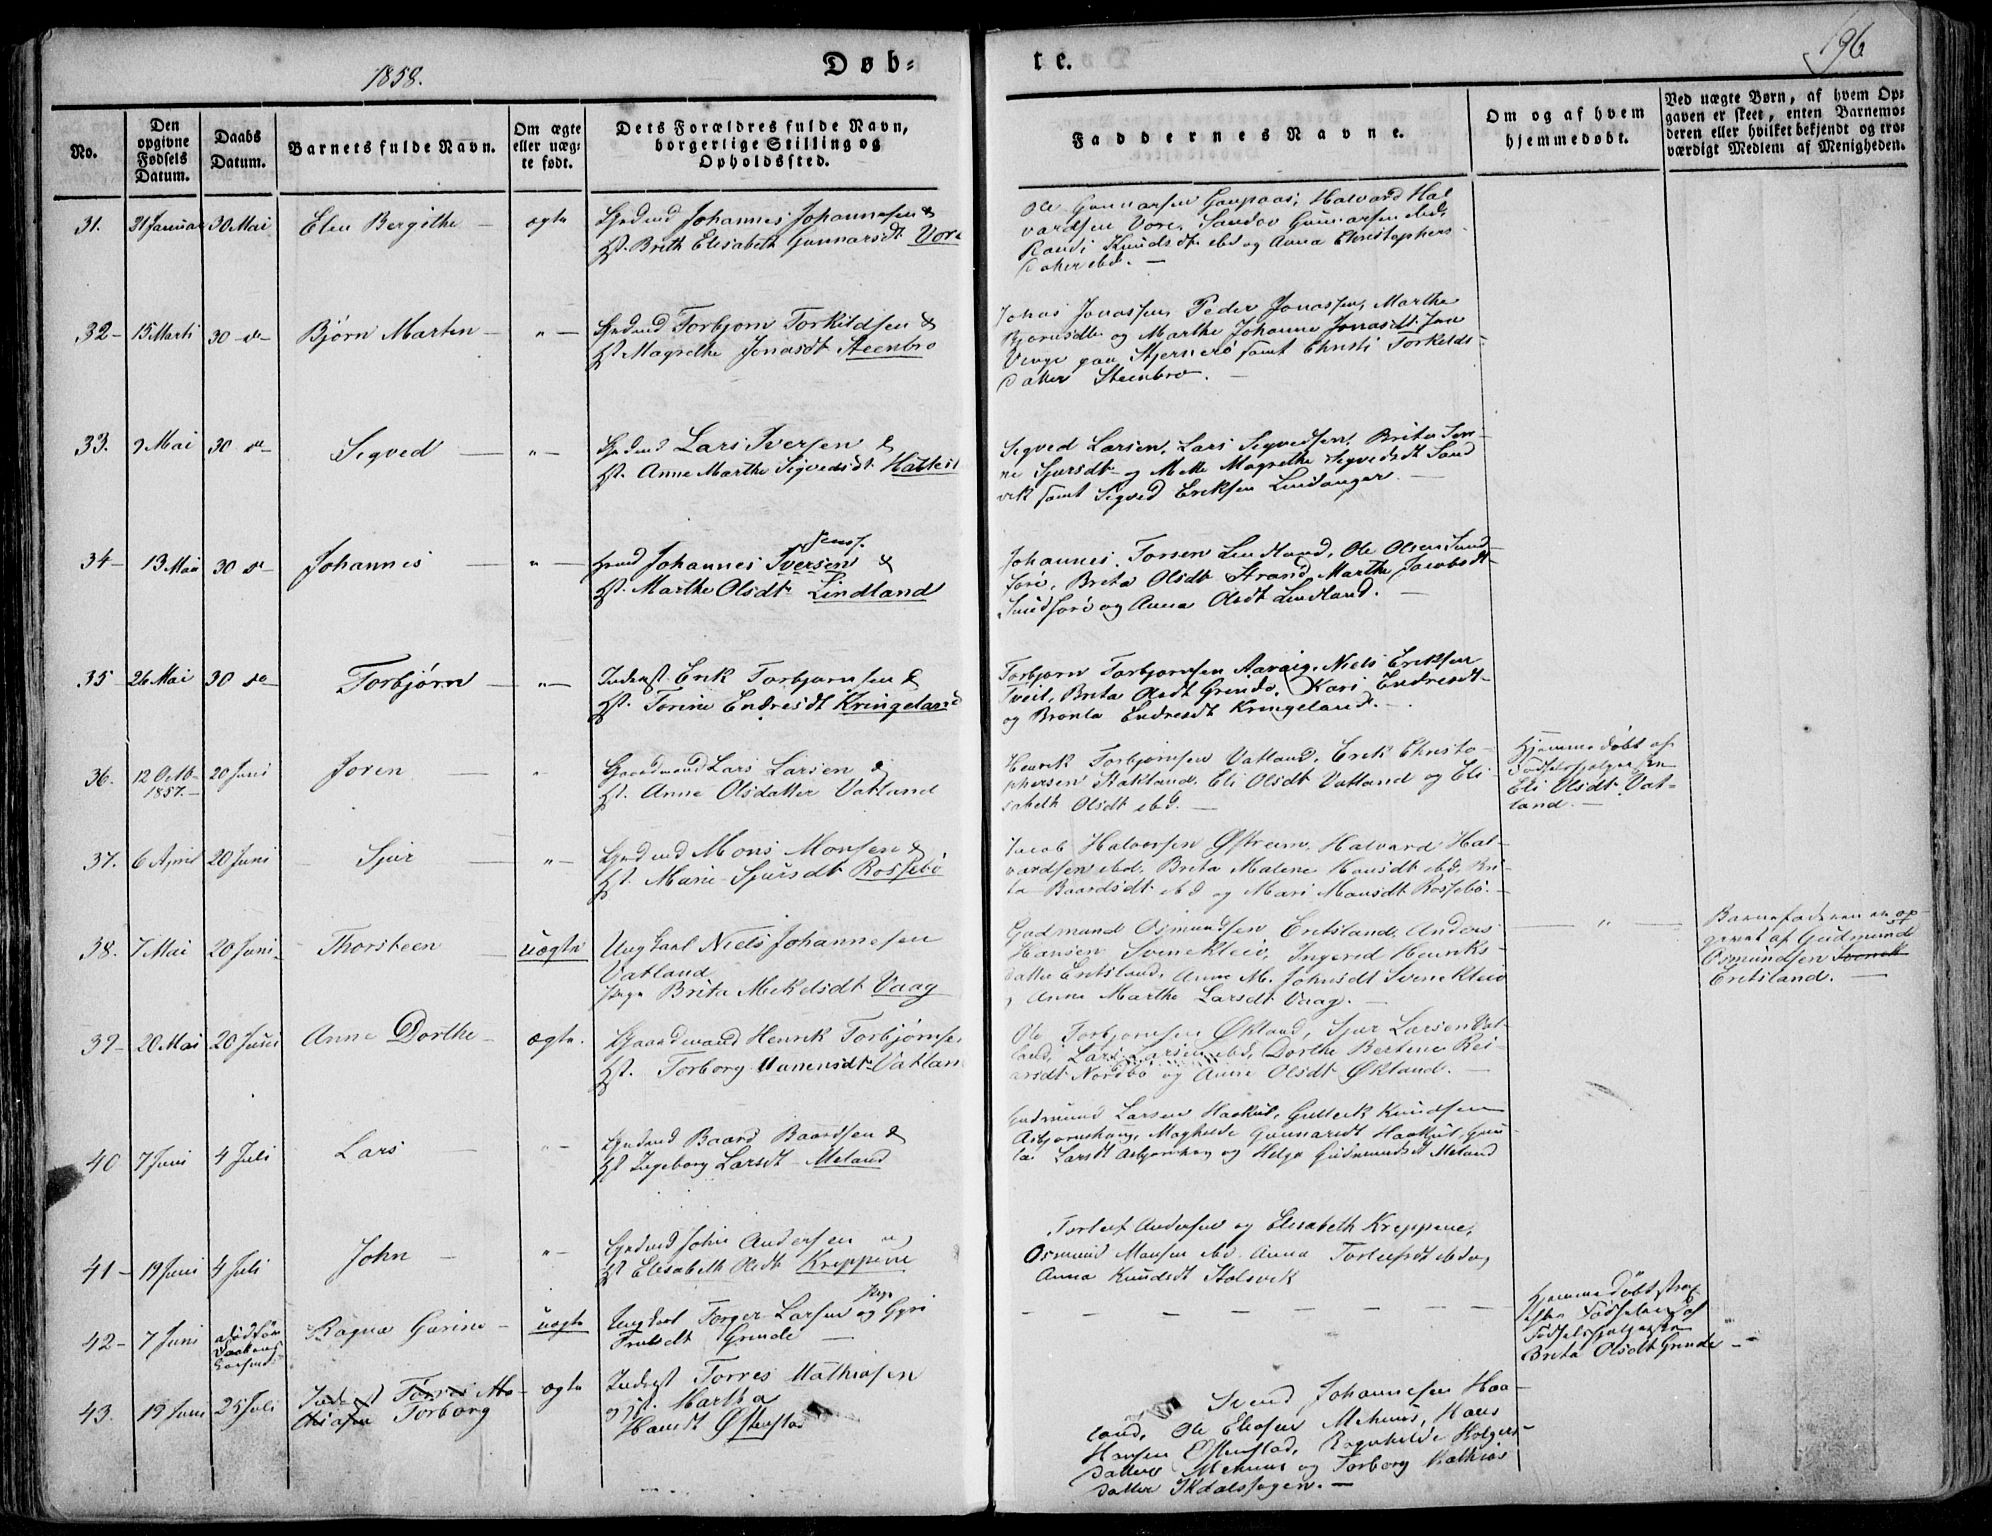 1858.
Døb-
te.
196
No.
Den opgivne Fødsels Datum.
Daabs Datum.
Barnets fulde Navn.
Om ægte eller uægte født.
Dets Forældres fulde Navn, borgerlige Stilling og Opholdssted.
Faddernes Navne.
Om og af hvem hjemmedøbt.
Ved uægte Børn, af hvem Opgaven er skeet, enten Barnemoderen eller hvilket bekjendt og troværdigt Medlem af Menigheden.
31. 31 Januar 30 Mai Elen Bergithe ægte
Johannes Johannesen &
Brith Elisabeth Gunnarsdt Vore
Ole Gunnarsen Gaupaas, Halvard Hal
vardsen Vore, Sandov Gunnarsen ibd.
Randi Knudsdt ibd og Anna Christophers
datter ibd.
32 15 Marti 30 Bjørn Marten
Torbjorn Torkildsen &
Magrethe Jonasdt Steenbro
Johas Jonassen, Peder Jonassen, Marthe
Bjornsdtr og Marthe Johanne Jonasdt
paa Stjernerø samt Christi Torkelds-
datter Steenbro.
33. 9 Mai 30 Sigved
Lars Iversen &
Anne Marthe Sigvedsdt
Sigved Larsen, Lars Sigvedsen, Brita
Sjursdt og Mette Magrethe Sigvedsdt Sand
vik samt Sigved Eriksen Lindanger.
34 13 Mai 30 Johannes
Jensf.
Johannes Iversen &
Marthe Olsdt Lindland
Johannes Lindland, Ole Olsen Sund-
føre, Brita Olsdt Strand, Marthe Jacobsdt
Sundføre og Anna Olsdt Lindland.
35 26 Mai 30 Torbjørn
Inderst Erik Torbjornsen &
Torine Endresdt Kringeland
Torbjorn Torbjornsen Aarvig, Niels Eriksen
Tveit, Brita Olsdt Grende, Kari Endresdt
og Bronla Endresdt Kringeland.
36. 12 Octb. 1857. 20 Juni Joren
Gaardmand Lars Larsen &
Anne Olsdatter Vatland
Henrik Torbjørnsen Vatland, Erik Christo-
phersen Stakland, Eli Olsdt Vatland og Eli-
sabeth Olsdt ibd.
Hjemmedøbt af
Fødselshjælpersken
Eli Olsdt Vat-
land.
37. 6 April 20 Juni Sjur
Mons Monsen &
Marie Sjursdt Rossebø
Jacob Halvorsen Østrem, Halvard Hal-
vardsen ibd, Brita Malene Hansdt ibd, Bri-
ta Baardsdt ibd og Mari Monsdt Rossebø.
38. 7 Mai 20 Juni Thorsteen uægte
Ungkarl Niels Johannesen
Vatland
Pige Brita Mikelsdt Vaag
Gudmund Osmundsen Eretsland, Anders
Hansen Svenekleiv, Ingerid Henriks-
datter Eretsland, Anne M. Johnsdt Svenekleiv
og Anne Marthe Larsdt Vaag.
Barnefaderen er op-
givet af Gudmund
Osmundsen
Eretsland.
39 20 Mai 20 Juni Anne Dorthe ægte
Gaardmand Henrik Torbjørnsen
Torborg Vatland
Ole Torbjornsen Økland, Sjur Larsen Vat-
land, Lars Larsen ibd, Dorthe Bertine Rei-
arsdt Nordbø og Anne Olsdt Økland.
40 7 Juni 4 Juli Lars
Baard Baardsen &
Ingeborg Larsdt Meland
Gudmund Larsen Haakul, Gutterk Knudsen
Asbjornshaug, Maghilde Gunnarsdt Haakul, Gun
la Larsdt Asbjornhaug og Helga Gudmundsdt Meland
41 19 Juni 4 Juli John
John Andersen
Elisabeth Olsdt Kreppene
Torleif Andersen og Elisabeth Kreppene,
Osmund Monsen ibd. Anna Torleifsdt ibd og
Anna Knudsdt Stolsvik
42 7 Juni Ragna Gurine uægte
Ungkarl Torger Larsen og Pige Gyri
Grinde
Hjemmedøbt strax
efter Fødselen af
Fødselshjælpersken
Brita Olsdt Grinde
43. 19 Juni 25 Juli Torborg ægte
Inderst Torres Mathiasen
Martha
Hansdt Østenstad
Svend Johannesen Haa-
land, Ole Eliasen Mehuus, Hans
Hansen Østenstad, Ragnhilde Holgers-
datter Mehuus og Torborg Mathias
datter